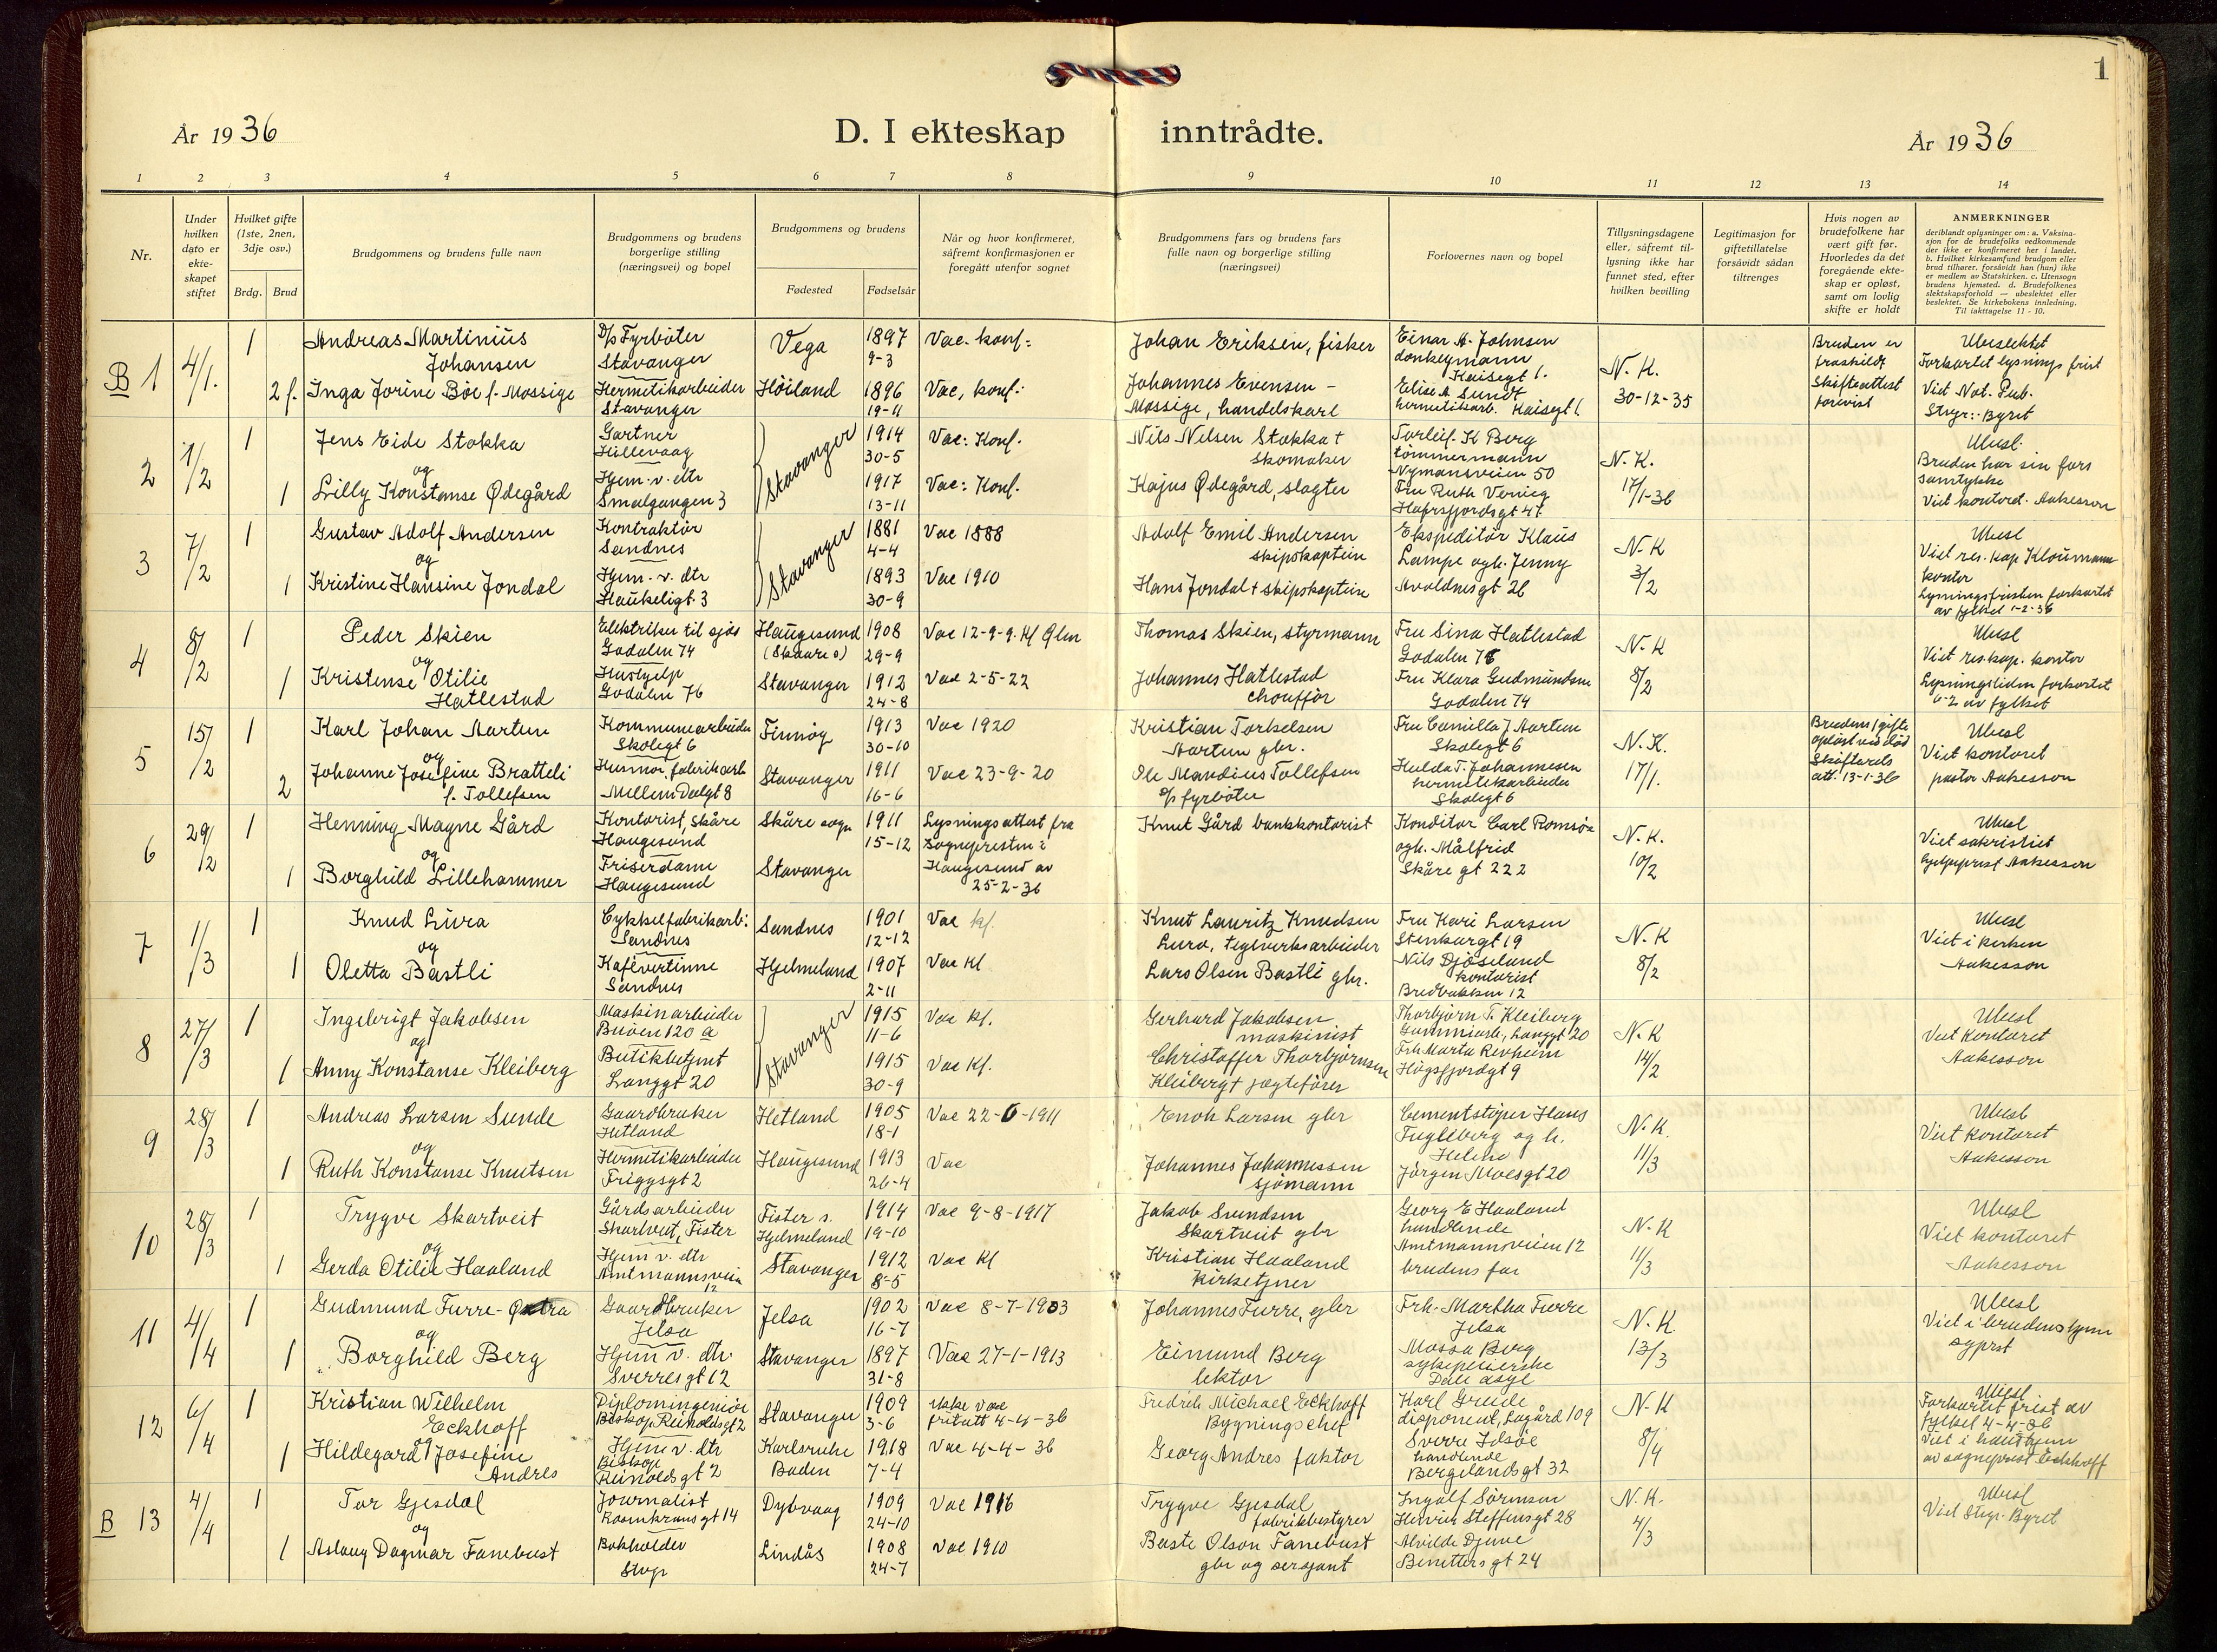 1
År 1936
D. I ekteskap inntrådte.
År 1936
1 2 3 4 5 6 7 8 9 10 11 12 13 14
Nr.
Under hvilken dato er ekte- skapet stiftet
Hvilket gifte (1ste, 2nen, 3dje osv.)
Brdg. Brud
Brudgommens og brudens fulle navn
Brudgommens og brudens borgerlige stilling (næringsvei) og bopel
Brudgommens og brudens
Fødested Fødselsår
Når og hvor konfirmeret, såfremt konfirmasjonen er foregått utenfor sognet
Brudgommens fars og brudens fars fulle navn og borgerlige stilling (næringsvei)
Forlovernes navn og bopel
Tillysningsdagene eller, såfremt til- lysning ikke har funnet sted, efter hvilken bevilling
Legitimasjon for giftetillatelse forsåvidt sådan tiltrenges
Hvis nogen av brudefolkene har vært gift før. Hvorledes da det foregående ekte- skap er opløst, samt om lovlig skifte er holdt
ANMERKNINGER
deriblandt oplysninger om: a. Vaksina- sjon for de brudefolks vedkommende der ikke er konfirmeret her i landet. b. Hvilket kirkesamfund brudgom eller brud tilhører, forsåvidt han (hun) ikke er medlem av Statskirken. c. Utensogn brudens hjemsted. d. Brudefolkenes slektskapsforhold — ubeslektet eller beslektet. Se kirkebokens innledning. Til iakttagelse 11 - 10.
B 1 4/1. 1 Andreas Martinius Johansen D/s Fyrbøter Stavanger Vega 1897 9-3 Vac. konf: Johan Eriksen, fisker Einar A. Johnsen donkeymann Kaisegt 1. N. K. 30-12-35 Bruden er fraskildt Skifteattest forevist Ubeslektet Forkortet lysnings frist Viet Not. Pub. Stvgr: Byret
2 f. Inga Jorine Böe f. Mossige Hermetikarbeider Stavanger Höiland 1896 19-11 Vac, konf: Johannes Evensen - Mossige, handelskarl Elise A Sundt hermetikarb. Kaisegt 1.
2 1/2 1 Jens Eide Stokka og Gartner Hillevaag Stavanger 1914 30-5 Vac: Konf. Nils Nelsen Stokka † Skomaker Torleif K Berg tömmermann Nymansveien 50 N. K. 17/1-36 Ubesl. Bruden har sin fars samtykke Viet kontoret. Aakesson
1 Lilly Konstanse Ødegård Hjem. v. dtr Smalgangen 3 1917 13-11 Vac: Konf. Kajus Ødegård, slagter Fru Ruth Verning Hafrsfjordsgt 47
3 7/2 1 Gustav Adolf Andersen og Kontraktör Sandnes Stavanger 1881 4-4 Vac 1888 Adolf Emil Andersen skipskaptein Ekspeditör Klaus Lampe og h. Jenny Avaldnesgt 26 N. K 3/2 Ubesl Viet res. kap Kloumann kontor Lysningsfristen forkortet av fylket 1-2-36
1 Kristine Hansine Jondal Hjem. v. dtr Haukeligt. 3 1893 30-9 Vac 1910 Hans Jondal † skipskaptein
4 8/2 1 Peder Skien og Elektriker til sjös Godalen 74 Haugesund (Skaare s) 1908 29-9 Vac 12-9-9. Kf Thomas Skien, styrmann Fru Sina Hatlestad Godalen 76 N. K 8/2 Ubesl Viet res. kap. kontor Lysningstiden forkortet 6-2 av fylket
1 Kristense Otilie Hatlestad Hushjelp Godalen 76 Stavanger 1912 24-8 Vac 2-5-22 Johannes Hatlestad chouffør Fru Klara Gudmundsen Godalen 74
5 15/2 1 Karl Johan Aartun og Kommunearbeider Skolegt 6 Finnöy 1913 30-10 Vac 1920 Kristian Torkelsen Aartun gbr. Fru Camilla J Aartun Skolegt 6 N. K. 17/1. Brudens 1 gifte opløst ved död Skifterets att. 13-1-36 Ubesl Viet kontoret pastor Aakesson
2 Johanne Josefine Bratteli f. Tollefsen Husmor, fabrikarb Mellem Dalgt 8 Stavanger 1911 16-6 Vac 23-9-20 Ole Mandius Tollefsen D/s fyrböter Hulda T. Johannesen hermetikkarbeider Skolegt 6
6 29/2 1 Henning Magne Gård og Kontorist, Skåre Haugesund Skåre sogn 1911 15-12 Lysningsattest fra Sognepresten i Haugesund av 25-2-36 Knut Gård bankkontorist Konditor Carl Romsöe og h. Målfrid Skåre gt 222 N. K. 10/2 Ubesl Viet sakristiet hjelpeprest Aakesson
1 Borghild Lillehammer Friserdame Haugesund Stavanger
7 1/3 1 Knud Lura og Cykkelfabrikarb: Sandnes Sandnes 1901 12-12 Vac kf. Knut Lauritz Knudsen Lura, teglverksarbeider Fru Kari Larsen Stenkargt 19 N. K 8/2 Ubesl Viet i kirken Aakesson
1 Oletta Bastli Kafévertinne Sandnes Hjelmeland 1907 2-11 Vac Kf Lars Olsen Bastli gbr. Nils Djöseland kontorist Bredbakken 12
8 27/3 1 Ingebrigt Jakobsen og Maskinarbeider Buöen 120 a Stavanger 1915 11-6 Vac kf. Gerhard Jakobsen maskinist Thorbjörn T. Kleiberg Gummiarb., Langgt 20 N. K 14/2 Ubesl Viet Kontoret Aakesson
1 Anny Konstanse Kleiberg Butikbetjent Langgt 20 1915 30-9 Vac Kf. Christoffer Thorbjörnsen Kleiberg † jægtefører Frk Marta Revheim Högsfjordgt 9
9 28/3 1 Andreas Larsen Sunde og Gaardbruker Hetland Hetland 1905 18-1 Vac 22-6-1911 Enok Larsen gbr Cementstöper Hans Fugleberg og h. Helene Jörgen Moesgt 20 N. K. 11/3 Ubesl Viet kontoret Aakesson
1 Ruth Konstanse Knutsen Hermetikarbeider Friggsgt 2 Haugesund 1913 26-4 Vac Johannes Johannessen sjömann
10 28/3 1 Trygve Skartveit og Gårdsarbeider Skartveit, Fister Fister s. Hjelmeland 1914 19-10 Vac 9-8-1917 Jakob Svendsen Skartveit gbr Georg E Haaland handlende Amtmannsveien 12 brudens far N. K 11/3 Ubesl Viet kontoret Aakesson
1 Gerda Otilie Haaland Hjem v. dtr Amtmannsveien 12 Stavanger 1912 8-5 Vac Kf Kristian Haaland kirketjner
11 4/4 1 Gudmund Furre-Østra og Gaardbruker Jelsa Jelsa 1902 16-7 Vac 8-7-1903 Johannes Furre, gbr Frk. Martha Furre Jelsa N. K. 13/3 Ubesl Viet i brudens hjem sgprst
1 Borghild Berg Hjem v. dtr. Sverresgt 12 Stavanger 1897 31-8 Vac 27-1-1913 Eimund Berg lektor Mossa Berg sykepleierske Dale asyl
12 6/4 1 Kristian Wilhelm Eckhoff og Diplomingeniör Biskop Reinoldsgt 2 Stavanger 1909 3-6 ikke vac fritatt 4-4-36 Fredrik Michael Eckhoff Bygningschef Karl Greide disponent, Lagård 109 N. K 8/4 Ubesl Forkortet frist av fylket 4-4-36 Viet i hausthjem av sogneprest Eckhoff
1 Hildegard Josefine Andres Hjem v. dtr Biskop Reinoldsgt 2 Karlsruhe Baden 1918 7-4 Vac 4-4-36 Georg Andres faktor Sverre Idsöe handlende Bergelandsgt 32
B 13 4/4 1 Tor Gjesdal og Journalist Rosenkransgt 14 Dybvaag 1909 24-10 Vac 1916 Trygve Gjesdal fabrikbestyrer Ingolf Sörensen Henrik Steffensgt 28 N. K. 4/3 Ubesl Viet Stvgr. Byret
1 Aslaug Dagmar Fanebust Bokholder Stvgr Lindås 1908 24-7 Vac 1910 Baste Olson Fanebust gbr og sersjant Alvilde Djuve Benettersgt 24